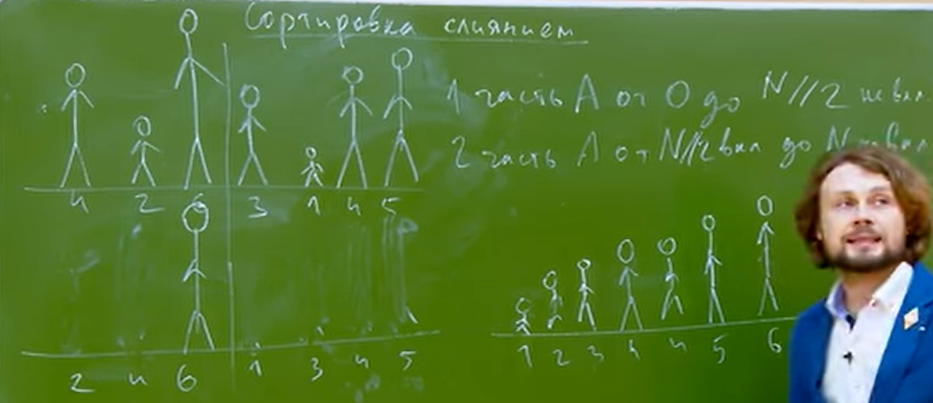 Сортировка слиянием
1 часть A от 0 до N//2 не вкл.
2 часть A от N//2 вкл до N не вкл
4 2 6 3 1 4 5
2 4 6 1 3 4 5
1 2 3 4 4 5 6